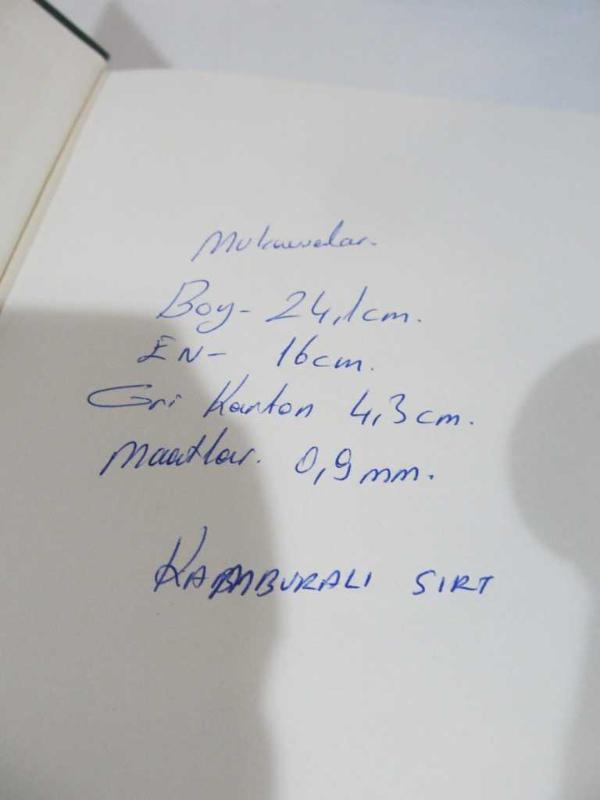 Mukavvalar.
Boy- 24,1cm.
EN- 16cm.
Gri Karton 4,3cm.
0,9mm.
KAMBURALI SIRT